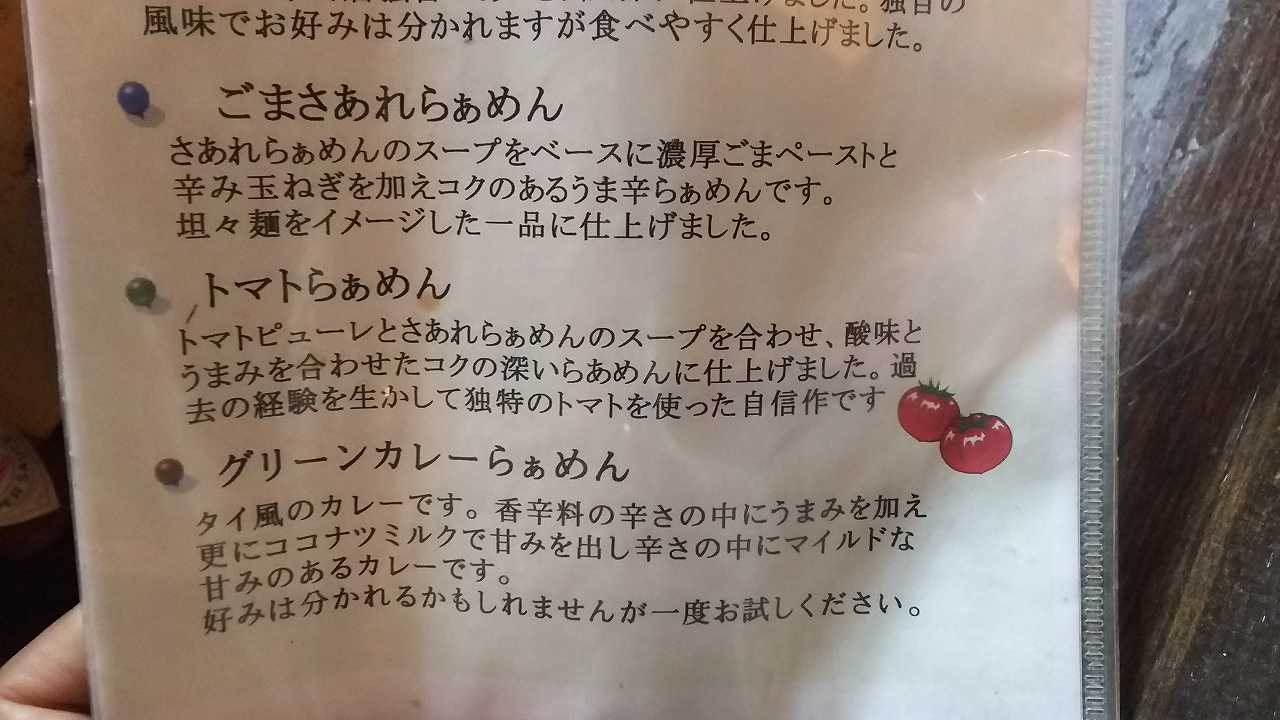 仕上げました。独自の
風味でお好みは分かれますが食べやすく仕上げました。
ごまさあれらぁめん
さあれらぁめんのスープをベースに濃厚ごまペーストと
辛み玉ねぎを加えコクのあるうま辛らぁめんです。
坦々麺をイメージした一品に仕上げました。
トマトらぁめん
トマトピューレとさあれらぁめんのスープを合わせ、酸味と
うまみを合わせたコクの深いらあめんに仕上げました。過
去の経験を生かして独特のトマトを使った自信作です
グリーンカレーらぁめん
タイ風のカレーです。香辛料の辛さの中にうまみを加え
更にココナツミルクで甘みを出し辛さの中にマイルドな
甘みのあるカレーです。
好みは分かれるかもしれませんが一度お試しください。